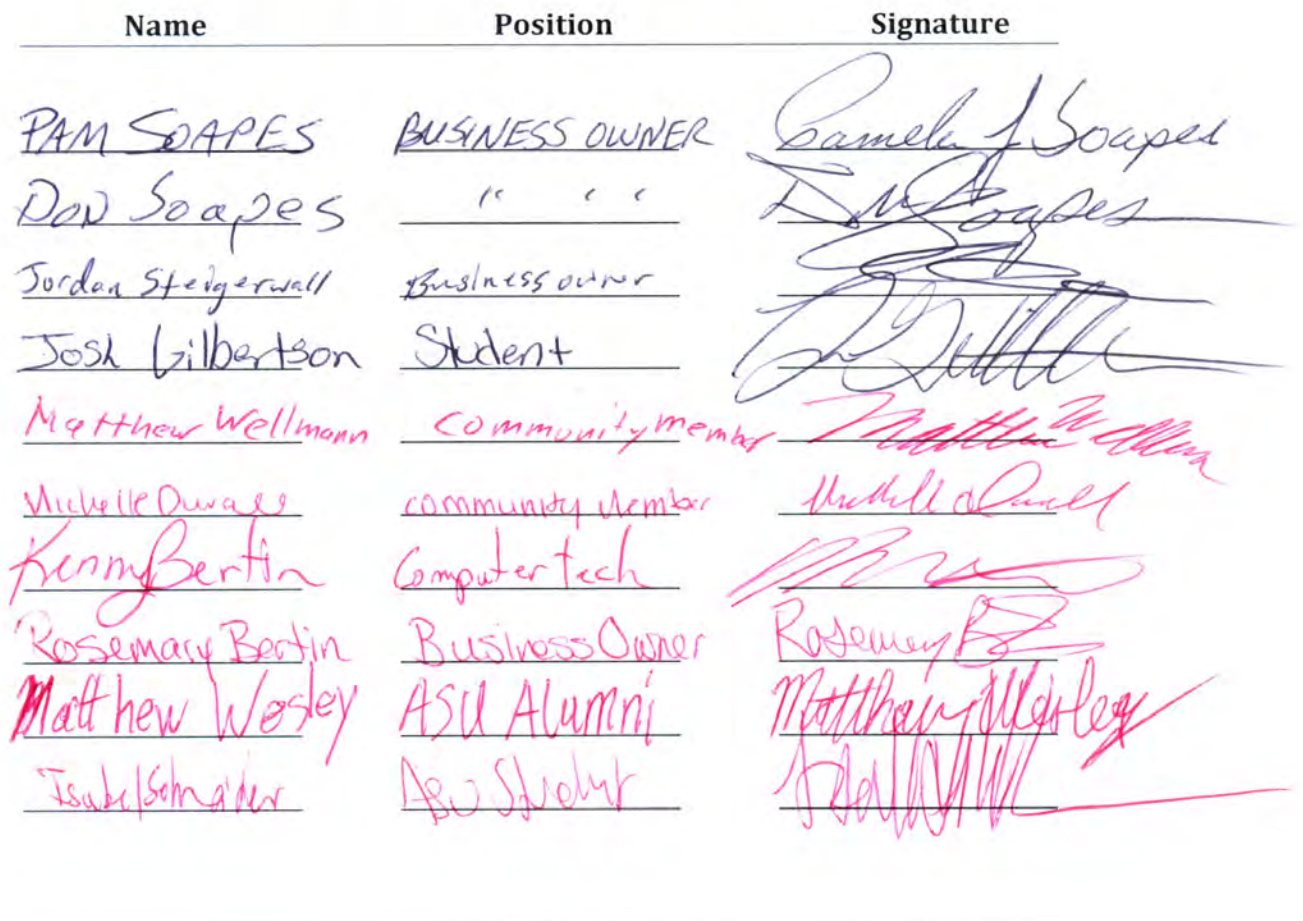 Name Position Signature
PAM SOAPES BUSINESS OWNER Pamela J Soapes
DON Soapes " " Don Soapes
Jordan Steigerwall Business owner
Josh Gilbertson Student
Matthew Wellmann community member Matthew Wellmann
Michelle Duvall community Member Michelle Duvall
Kenny Bertin Computer tech
Rosemary Bertin Business Owner Rosemary
Matthew Wesley ASU Alumni Matthew Wesley
Isabel Schneider ASU Student